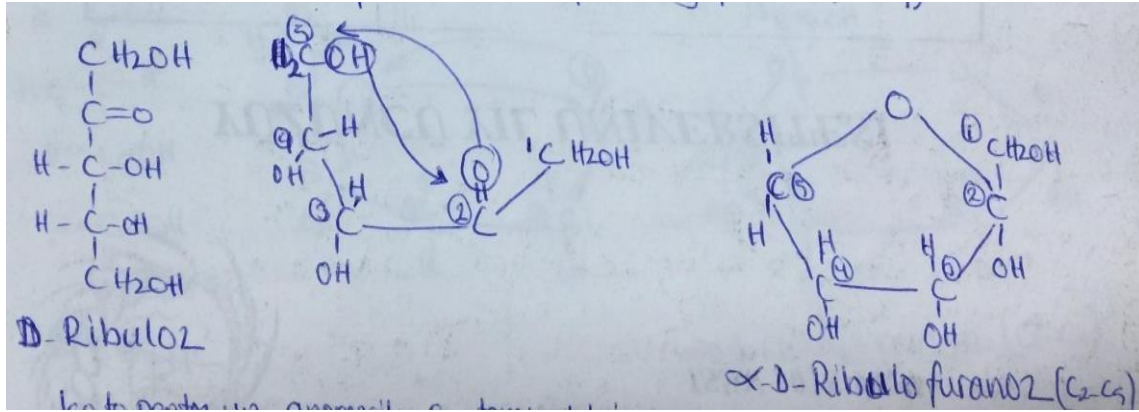 CH2OH
C=O
H-C-OH
H-C-OH
CH2OH
D-Ribuloz
5
H2COH
4 C-H
OH
H
3 C
OH
O
2 C
1 CH2OH
O
H
C 5
H
H
4
C
OH
H
3
C
OH
1 CH2OH
2 C
OH
α-D-Ribulofuranoz (C2-C5)